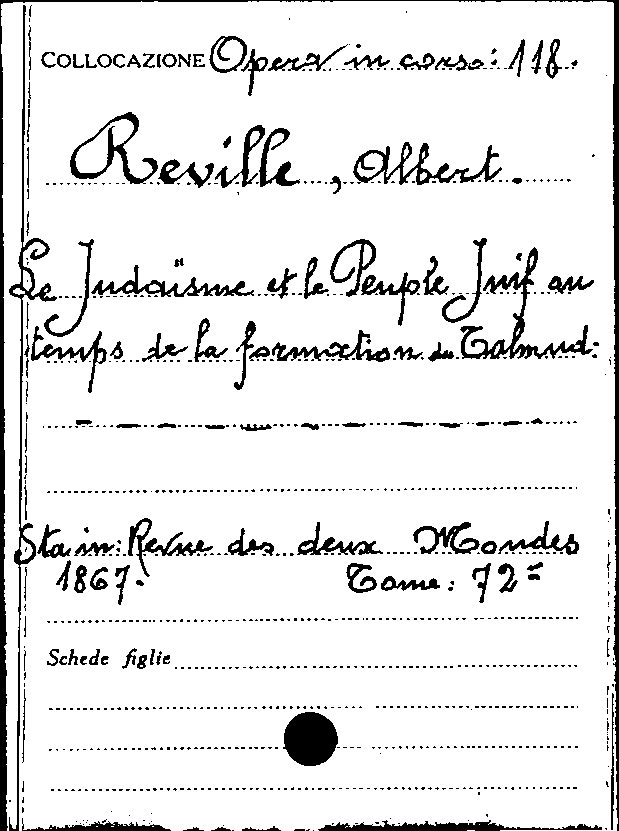 COLLOCAZIONE Opera in corso: 118.
Reville, Albert.
Le Judaïsme et le Peuple Juif au
temps de la formation du Talmud:
Sta in: Revue des deux Mondes
1867. Tome: 72=
Schede figlie